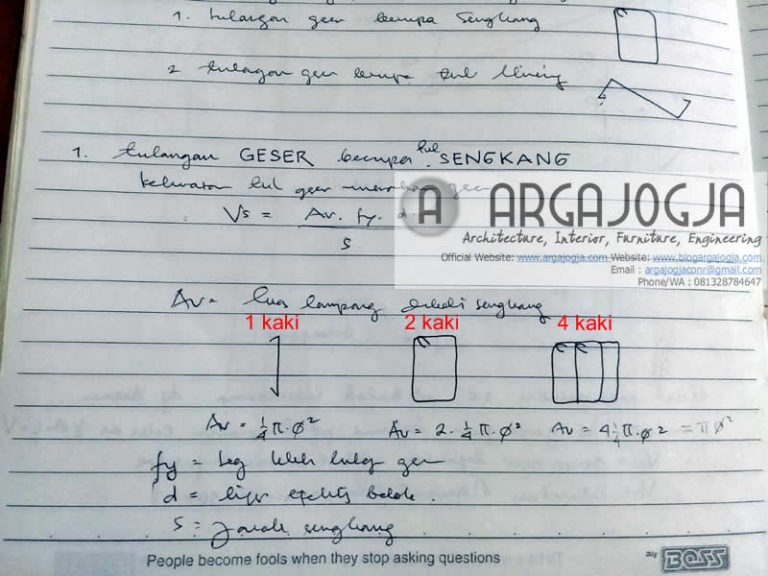 1. tulangan geser berupa Sengkang
2 tulangan geser berupa tul Miring
1. tulangan GESER berupa tul. SENGKANG
kekuatan tul geser menahan
Vs = Av. fy. d
s
A ARGAJOGJA
Architecture, Interior, Furniture, Engineering
Official Website: www.argajogja.com Website: www.blogargajogja.com
Email : argajogjaconr@gmail.com
Phone/WA : 081328784647
Av = luas tampang sengkang
1 kaki 2 kaki 4 kaki
Av = ¼ π. ø² Av = 2. ¼ π. ø² Av = 4 ¼ π. ø² = π ø²
fy = teg leleh tulang geser
d = tinggi efektif balok.
s = Jarak sengkang
People become fools when they stop asking questions
BOSS